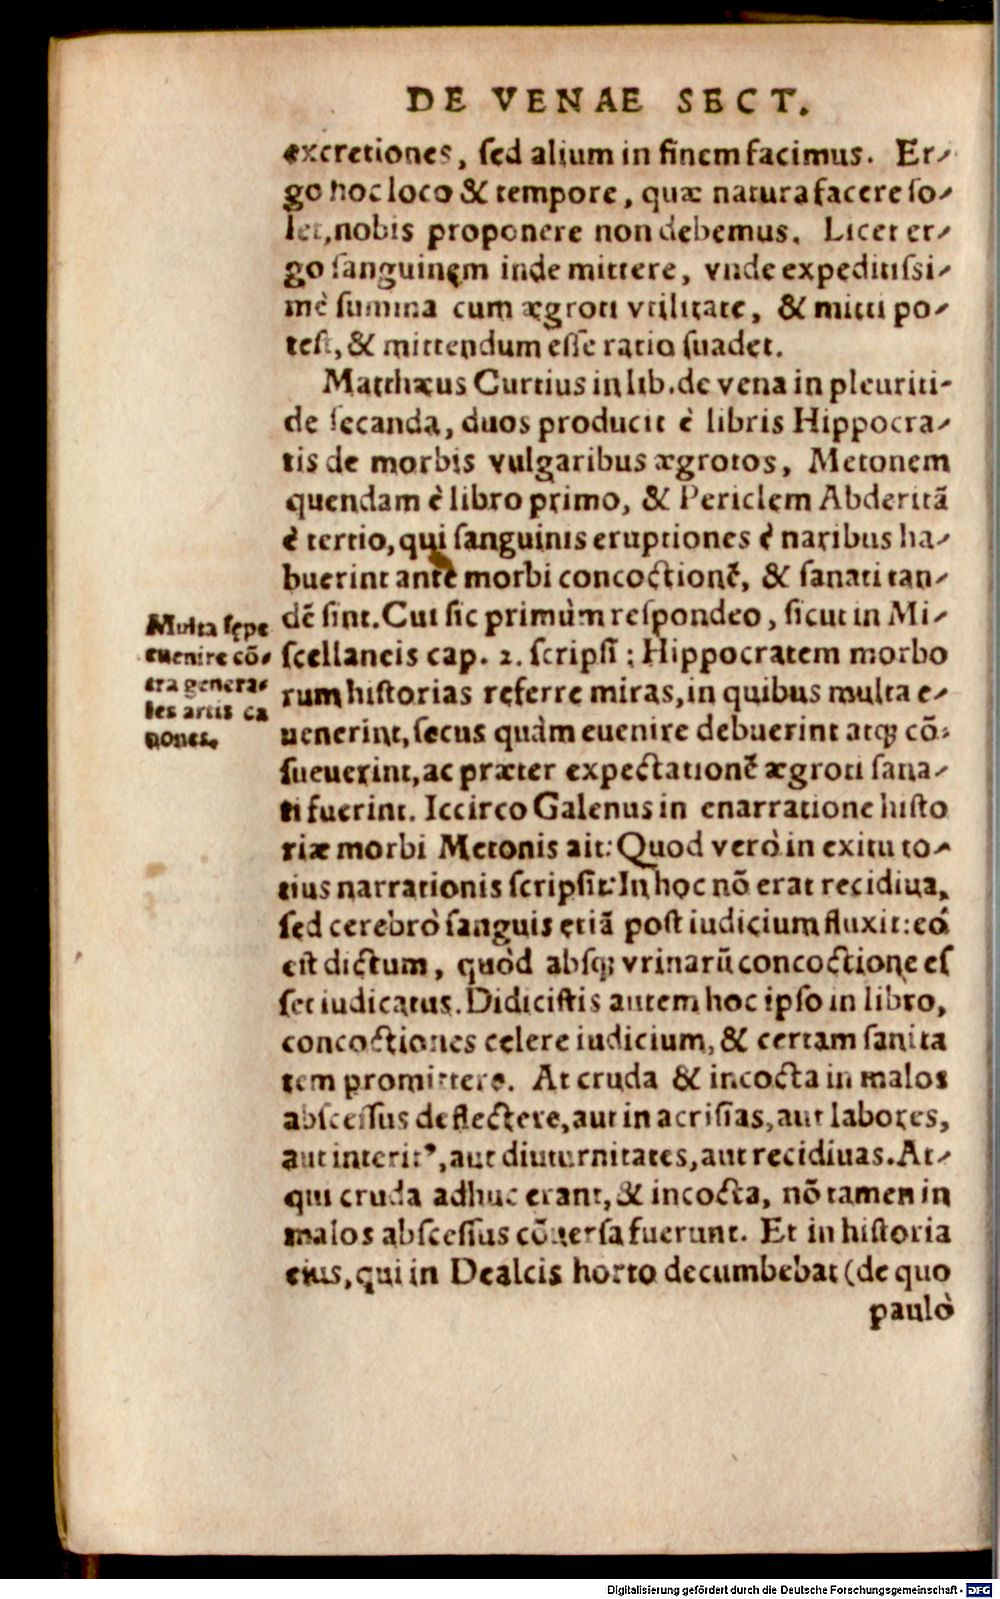 DE VENAE SECT.
excretiones, sed alium in finem facimus. Er-
go hoc loco & tempore, quæ natura facere so-
let, nobis proponere non debemus. Licet er-
go sanguinęm inde mittere, vnde expeditissi-
mè summa cum ægroti vtilitate, & mitti po-
test, & mittendum esse ratio suadet.
Matthæus Curtius in lib. de vena in pleuriti-
de secanda, duos producit è libris Hippocra-
tis de morbis vulgaribus ægrotos, Metonem
quendam è libro primo, & Periclem Abderitã
è tertio, qui sanguinis eruptiones è naribus ha-
buerint ante morbi concoctionẽ, & sanati tan-
dẽ sint. Cui sic primùm respondeo, sicut in Mi-
scellaneis cap. 2. scripsi: Hippocratem morbo
rum historias referre miras, in quibus multa e-
uenerint, secus quàm euenire debuerint atq; cõ-
sueuerint, ac præter expectationẽ ægroti sana-
ti fuerint. Iccirco Galenus in enarratione histo
riæ morbi Metonis ait: Quod verò in exitu to-
tius narrationis scripsit: In hoc nõ erat recidiua,
sed cerebrò sanguis etiã post iudicium fluxit: eò
est dictum, quòd absq; vrinarũ concoctione es
set iudicatus. Didicistis autem hoc ipso in libro,
concoctiones celere iudicium, & certam sanita
tem promittere. At cruda & incocta in malos
abscessus deflectere, aut in acrisias, aut labores,
aut interit', aut diuturnitates, aut recidiuas. At-
qui cruda adhuc erant, & incocta, nõ tamen in
malos abscessus cõuersa fuerunt. Et in historia
eius, qui in Dealcis horto decumbebat (de quo
paulò
Multa sępe
euenire cõ-
tra genera-
les artis ca
nones.
Digitalisierung gefördert durch die Deutsche Forschungsgemeinschaft - DFG